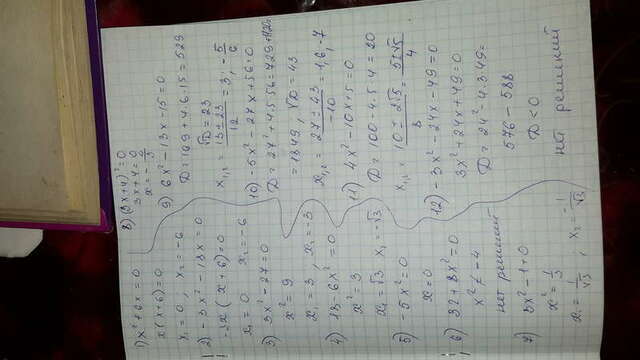 1) x² + 6x = 0
x(x+6) = 0
x₁ = 0, x₂ = -6
2) -3x² - 18x = 0
-3x(x+6) = 0
x₁ = 0 x₂ = -6
3) 3x² - 27 = 0
x² = 9
x₁ = 3, x₂ = -3
4) 18 - 6x² = 0
x² = 3
x₁ = √3 x₂ = -√3
5) -5x² = 0
x = 0
6) 32 + 8x² = 0
x² ≠ -4
нет решений
7) 3x² - 1 = 0
x² = 1/3
x₁ = 1/√3, x₂ = -1/√3
8) (3x+4)² = 0
3x + 4 = 0
x = -4/3
9) 6x² - 13x - 15 = 0
D = 169 + 4·6·15 = 529
√D = 23
x₁,₂ = 13 ± 23 / 12 = 3, -5/6
10) -5x² - 27x + 56 = 0
D = 27² + 4·5·56 = 729 + 1120
= 1849, √D = 43
x₁,₂ = 27 ± 43 / -10 = 1,6, -7
11) 4x² - 10x + 5 = 0
D = 100 - 4·5·4 = 20
x₁,₂ = 10 ± 2√5 / 8 = 5 ± √5 / 4
12) -3x² - 24x - 49 = 0
3x² + 24x + 49 = 0
D = 24² - 4·3·49 =
576 - 588
D < 0
нет решений